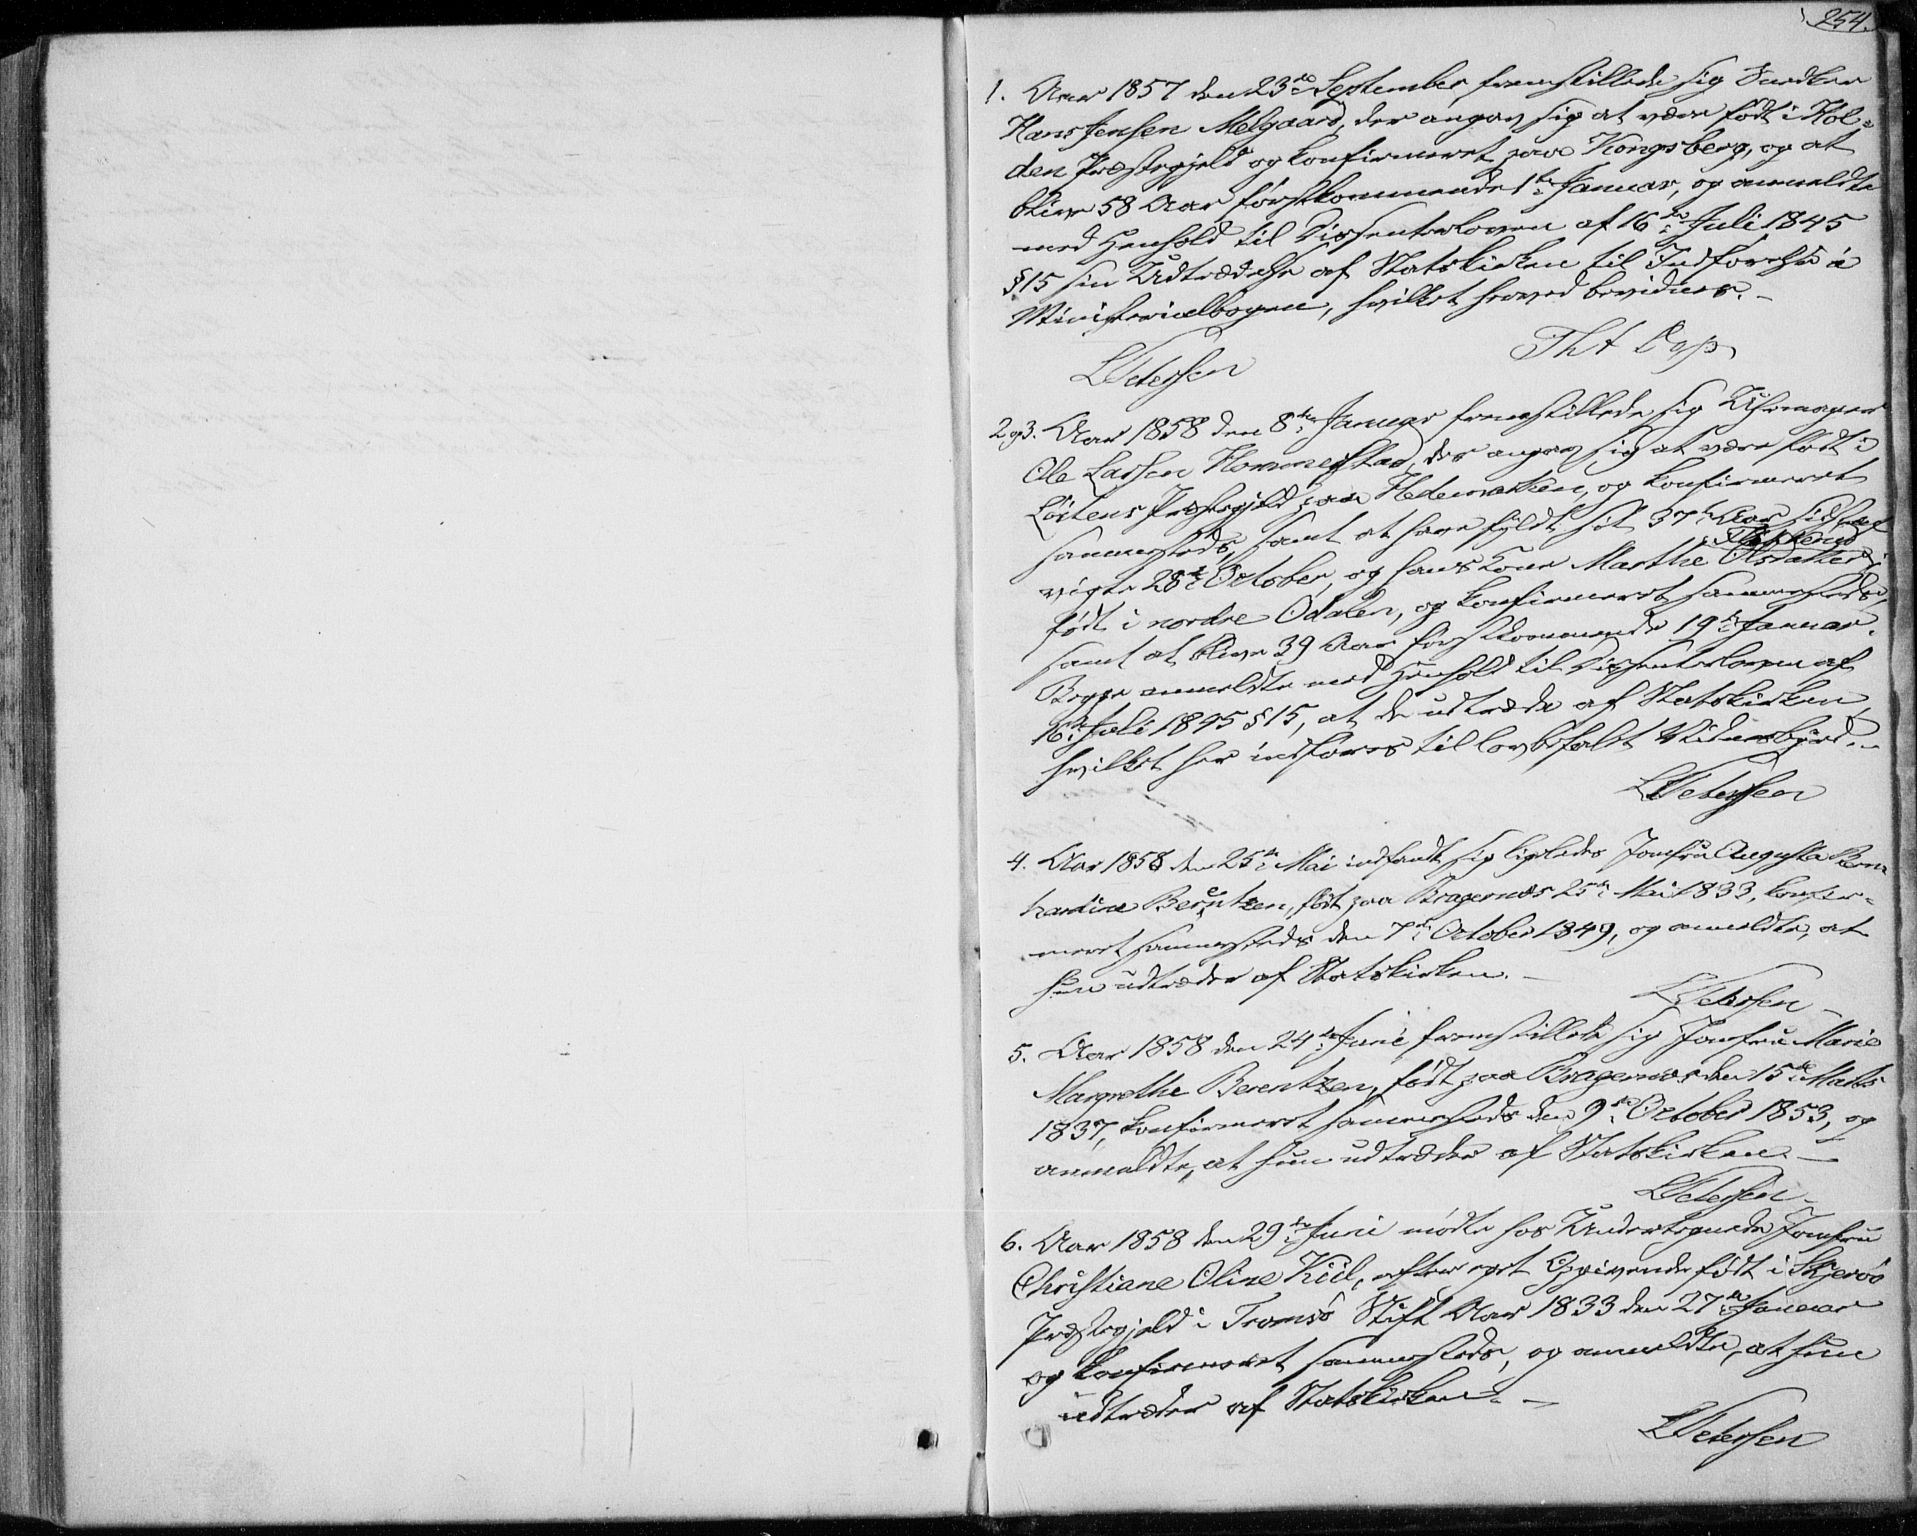 254.
1. Aar 1857 den 23de September fremstillede sig Snedker
Hans Jensen Melgaard, der angav sig at være født i Hol-
den Præstegjeld og konfirmeret paa Kongsberg, og at
blive 58 Aar førstkommende 1ste Januar, og anmeldte
med Henhold til Dissenterloven af 16de Juli 1845
§ 15 sin Udtrædelse af Statskirken til Indførelse i
Ministerialbogen, hvilket herved bevidnes.
LPetersen
2 og 3. Aar 1858 den 8de Januar fremstillede sig Uhrmager
Ole Larsen Hommerstad, der angav sig at være født i
Löitens Præstegjeld paa Hedemarken, og konfirmeret
sammesteds, samt at have fyldt sit 37te Aar sidstaf-
vigte 28de October, og hans Kone Marthe Olsdatter
født i nordre Odalen, og konfirmeret sammesteds,
samt at blive 39 Aar førstkommende 19de Januar.
Begge anmeldte med Henhold til Dissenterloven af
16de Juli 1845 § 15, at de udtræde af Statskirken,
hvilket her indføres til lovbefalt Vidnesbyrd.
LPetersen
4. Aar 1858 den 25de Mai indfandt sig ligeledes Jomfru Augusta Bern-
hardine Berentzen, født paa Bragernæs 25de Mai 1833, konfir-
meret sammesteds den 7de October 1849, og anmeldte, at
hun udtræder af Statskirken.
LPetersen
5. Aar 1858 den 24de Juni fremstillede sig Jomfru Marie
Margrethe Berentzen, født paa Bragernæs den 15de Marts
1837, konfirmeret sammesteds den 9de October 1853, og
anmeldte, at hun udtræder af Statskirken.
LPetersen
6. Aar 1858 den 29de Juni mødte hos Undertegnede Jomfru
Christiane Oline Kiil, efter eget Opgivende født i Skjervö
Præstegjeld i Tromsö Stift Aar 1833 den 27de Januar
og konfirmeret sammesteds, og anmeldte, at hun
udtræder af Statskirken.
LPetersen